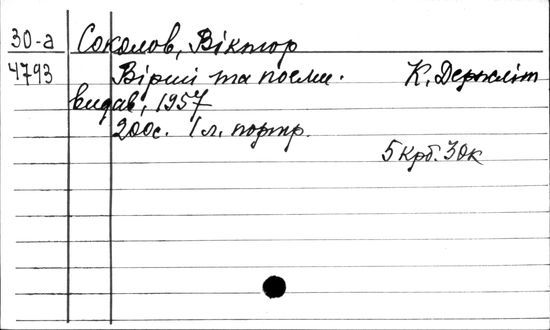 30-а Соколов, Віктор
4793 Вірші та поеми. К, Держліт
видав, 1957
200с. 1 л. портр.
5 крб. 30к